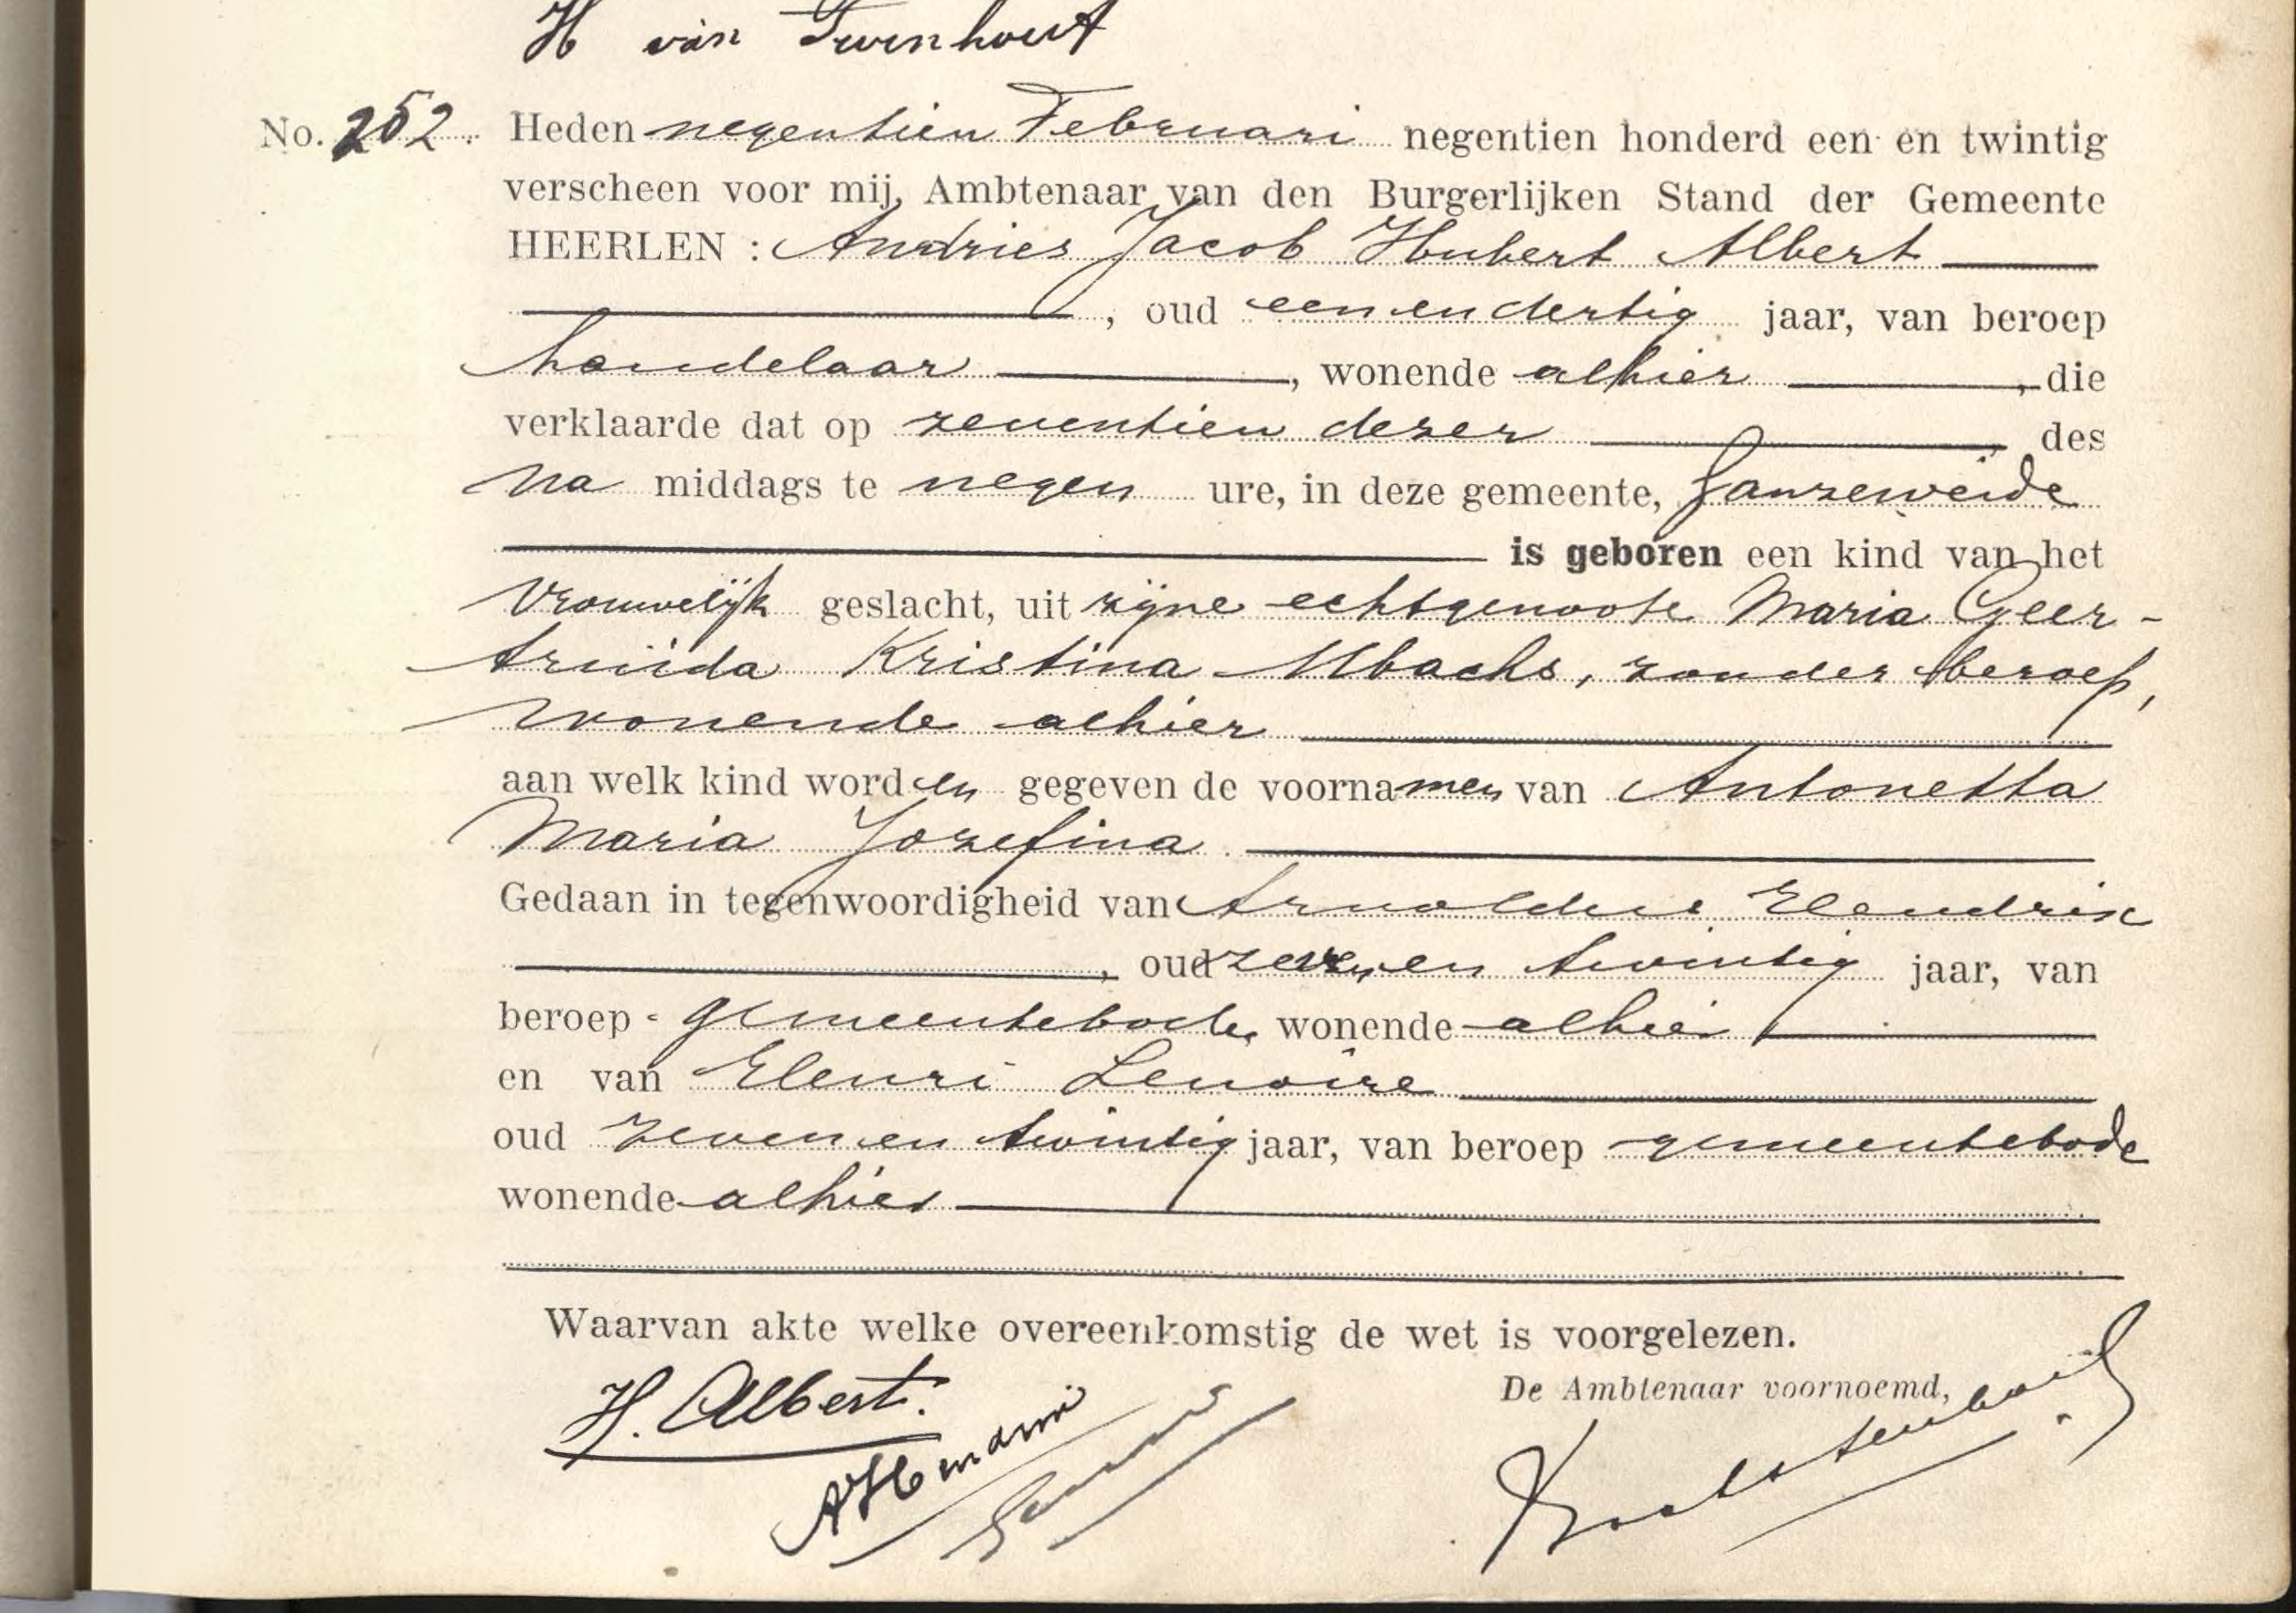 H van
No. 252. Heden negentien Februari negentien honderd een en twintig
verscheen voor mij, Ambtenaar van den Burgerlijken Stand der Gemeente
HEERLEN : Andries Jacob Hubert Albert
, oud eenendertig jaar, van beroep
handelaar, wonende alhier, die
verklaarde dat op zeventien dezer, des
na middags te negen ure, in deze gemeente, Ganzeweide
is geboren een kind van het
vrouwelijk geslacht, uit zijne echtgenoote Maria Geer-
truida Kristina Ubachs, zonder beroep,
wonende alhier
aan welk kind worden gegeven de voornamen van Antonetta
Maria Jozefina
Gedaan in tegenwoordigheid van Arnoldus Hendrix
, oud zevenen twintig jaar, van
beroep gemeentebode, wonende alhier
en van Henri Lenoire
oud zevenen twintig jaar, van beroep gemeentebode
wonende alhier
Waarvan akte welke overeenkomstig de wet is voorgelezen.
De Ambtenaar voornoemd,
H. Albert.